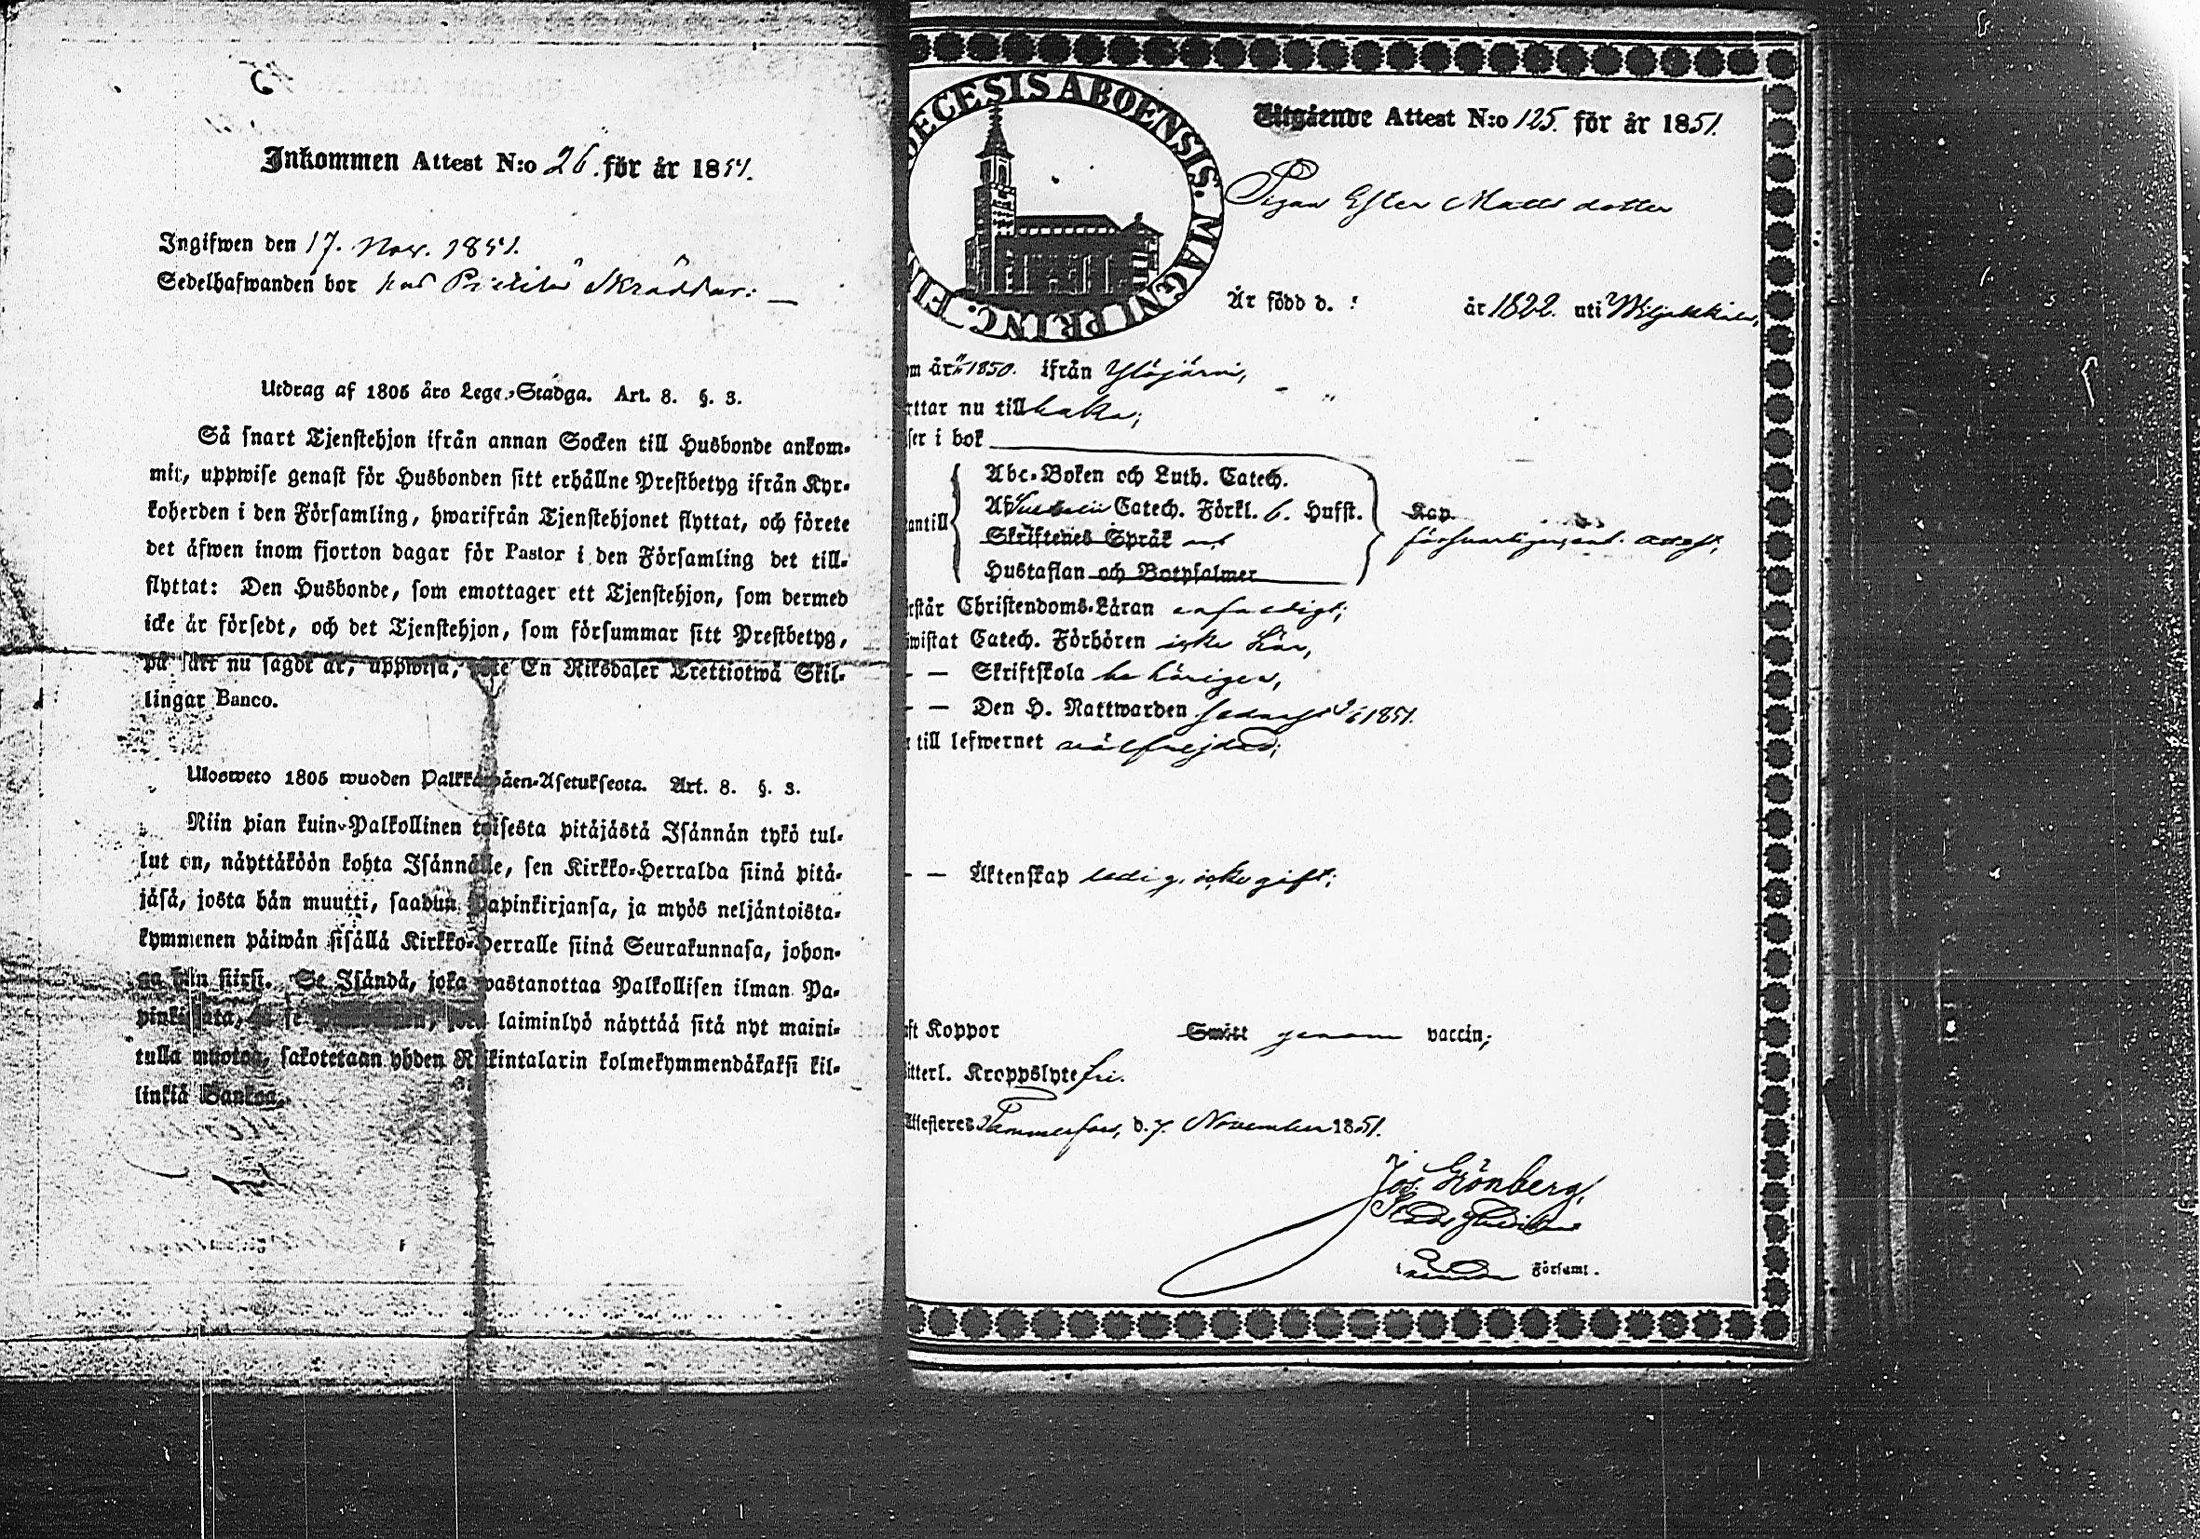 Inkommen Attest N:o 26. för år 1851.
Ingifwen den 17. Nov. 1851.
Sedelhafwanden bor hos Skräddar: —
Utdrag af 1805 års Lego-Stadga. Art. 8. §. 3.
Så snart Tjenstehjon ifrån annan Socken till Husbonde ankom-
mit, uppwise genast för Husbonden sitt erhållne Prestbetyg ifrån Kyr-
koherden i den Församling, hwarifrån Tjenstehjonet flyttat, och förete
det äfwen inom fjorton dagar för Pastor i den Församling det till-
flyttat: Den Husbonde, som emottager ett Tjenstehjon, som dermed
icke är försedt, och det Tjenstehjon, som försummar sitt Prestbetyg,
på sätt nu sagdt är, uppwisa, böte En Riksdaler Trettiotwå Skil-
lingar Banco.
Ulosweto 1805 wuoden Palkkawäen-Asetuksesta. Art. 8. §. 3.
Niin pian kuin Palkollinen toisesta pitäjästä Isännän tykö tul-
lut on, näyttäköön kohta Isännälle, sen Kirkko-Herralda siinä pitä-
jäsä, josta hän muutti, saadun Papinkirjansa, ja myös neljäntoista-
kymmenen päiwän sisällä Kirkko-Herralle siinä Seurakunnasa, johon-
ga hän siirsi. Se Isändä, joka wastanottaa Palkollisen ilman Pa-
pinkirjata, ja se laiminlyö näyttää sitä nyt maini-
tulla muotoa, sakotetaan yhden Riikintalarin kolmekymmendäkaksi kil-
linkiä Bankoa.
DECESIS ABOENSIS. MAGNI PRINC. FIN
Utgående Attest N:o 125. för år 1851.
Pigan Ester Mattsdotter
Är född d. : år 1822. uti
om år 1850. ifrån Ylöjärvi,
ttar nu tillbaka;
ser i bok
Abc-Boken och Luth. Catech.
Catech. Förkl. 6. Husst. Kap.
antill
Skriftenes Språk
Hustaflan och Botpsalmer
rstår Christendoms-Läran enfaldigt;
wistat Catech. Förhören icke här,
– – Skriftskola behörigen,
– – Den H. Nattwarden sednast 1851.
till lefwernet wälfrejdad;
– – Äktenskap ledig, icke gift;
ft Koppor Smitt genom vaccin;
itterl. Kroppslyte fri.
Attesteres Tammerfors, d. 7. November 1851.
Jos. Grönberg,
i Församl.